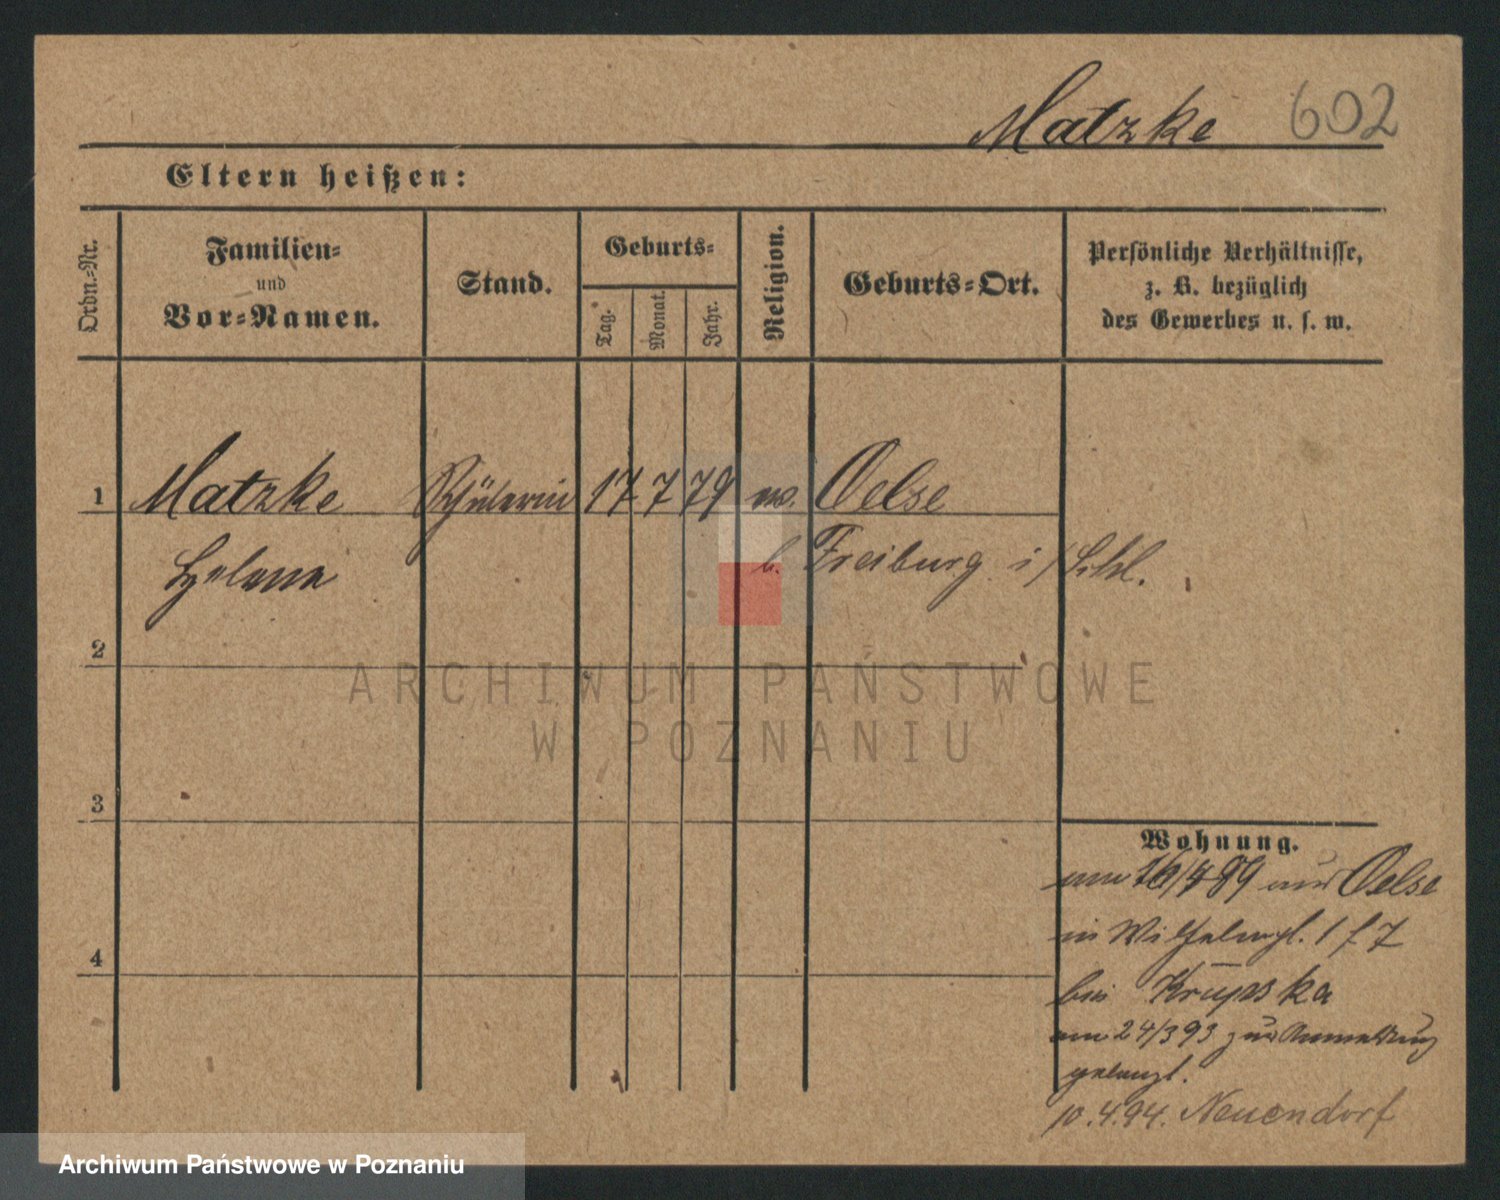 Matzke 602
Eltern heißen:
Ordn.-Nr.
Familien-
und
Vor-Namen.
Stand.
Geburts-
Tag.
Monat.
Jahr.
Religion.
Geburts-Ort.
Persönliche Verhältnisse,
z. B. bezüglich
des Gewerbes u. s. w.
1 Matzke Schülerin 17 7 79 ev. Oelse
Helene b. Freiburg i/Schl.
2
ARCHIWUM PAŃSTWOWE
W POZNANIU
3
Wohnung.
4
am 16/4 89 aus Oelse
in Wilhelmpl. 1 f 7
bei Krupska
am 24/3 93 zur Anmeldung
gelangt.
10.4.94. Neuendorf
Archiwum Państwowe w Poznaniu